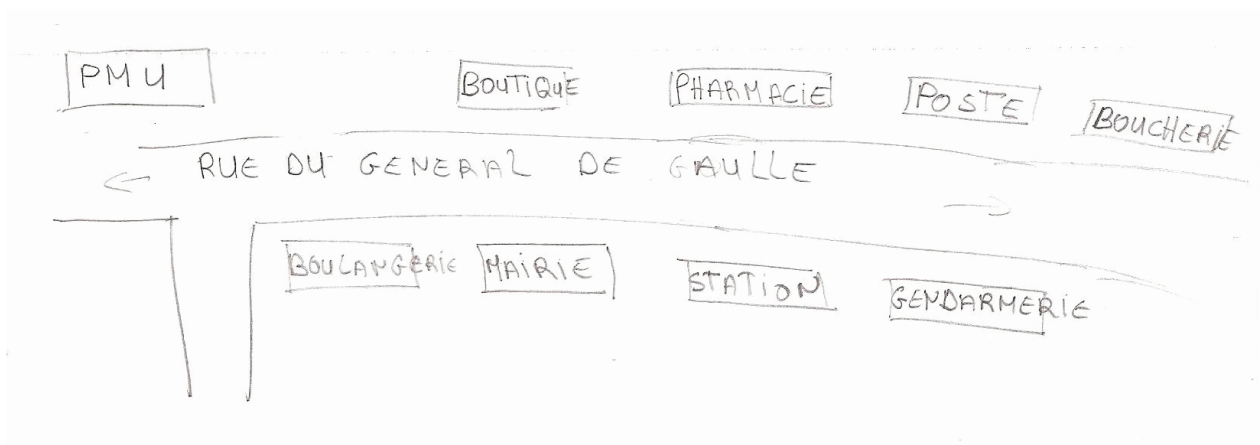 PMU
BOUTIQUE
PHARMACIE
POSTE
BOUCHERIE
RUE DU GENERAL DE GAULLE
BOULANGERIE
MAIRIE
STATION
GENDARMERIE